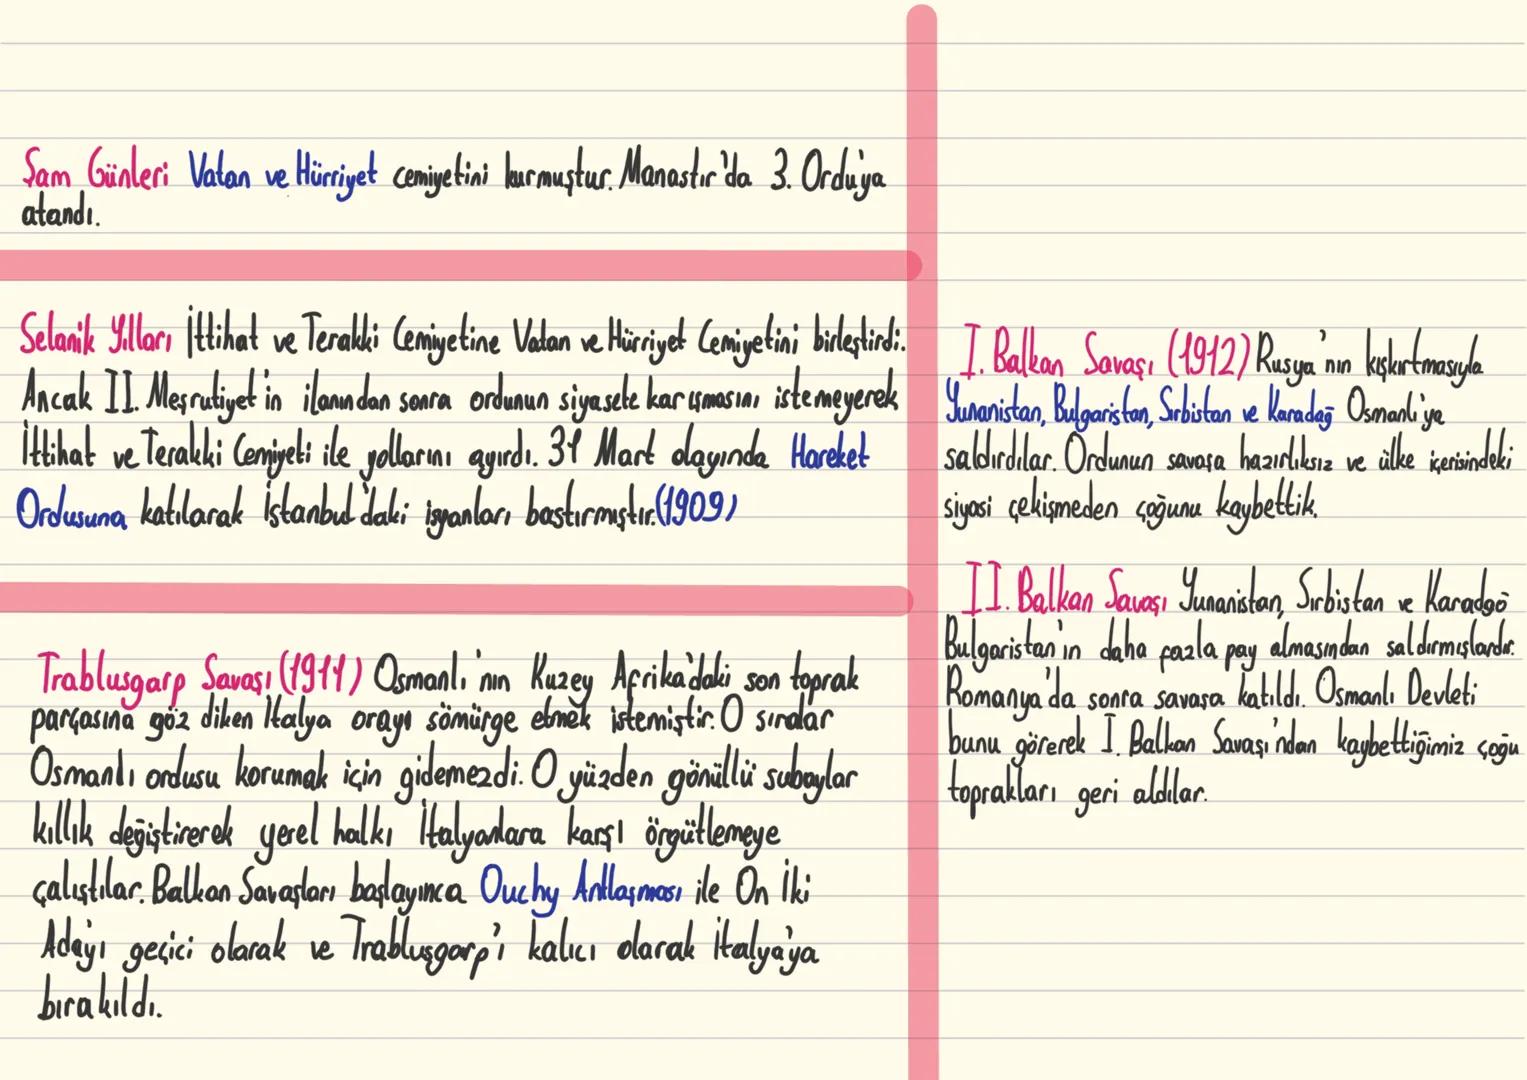 Şam Günleri Vatan ve Hürriyet cemiyetini kurmuştur. Manastır'da 3. Ordu'ya
atandı.
Selanik Yılları İttihat ve Terakki Cemiyetine Vatan ve Hürriyet Cemiyetini birleştirdi.
Ancak II. Meşrutiyet'in ilanından sonra ordunun siyasete karışmasını istemeyerek
İttihat ve Terakki Cemiyeti ile yollarını ayırdı. 31 Mart olayında Hareket
Ordusuna katılarak İstanbul'daki isyanları bastırmıştır.(1909)
Trablusgarp Savaşı (1911) Osmanlı'nın Kuzey Afrika'daki son toprak
parçasına göz diken İtalya orayı sömürge etmek istemiştir. O sıralar
Osmanlı ordusu korumak için gidemezdi. O yüzden gönüllü subaylar
kıllık değiştirerek yerel halkı İtalyanlara karşı örgütlemeye
çalıştılar. Balkan Savaşları başlayınca Ouchy Antlaşması ile On İki
Ada'yı geçici olarak ve Trablusgarp'i kalıcı olarak İtalya'ya
bırakıldı.
I. Balkan Savaşı (1912) Rusya'nın kışkırtmasıyla
Yunanistan, Bulgaristan, Sırbistan ve Karadağ Osmanlı'ya
saldırdılar. Ordunun savaşa hazırlıksız ve ülke içerisindeki
siyasi çekişmeden çoğunu kaybettik.
II. Balkan Savaşı Yunanistan, Sırbistan ve Karadağ
Bulgaristan'ın daha fazla pay almasından saldırmışlardır.
Romanya'da sonra savaşa katıldı. Osmanlı Devleti
bunu görerek I. Balkan Savaşı'ndan kaybettiğimiz çoğu
toprakları geri aldılar.